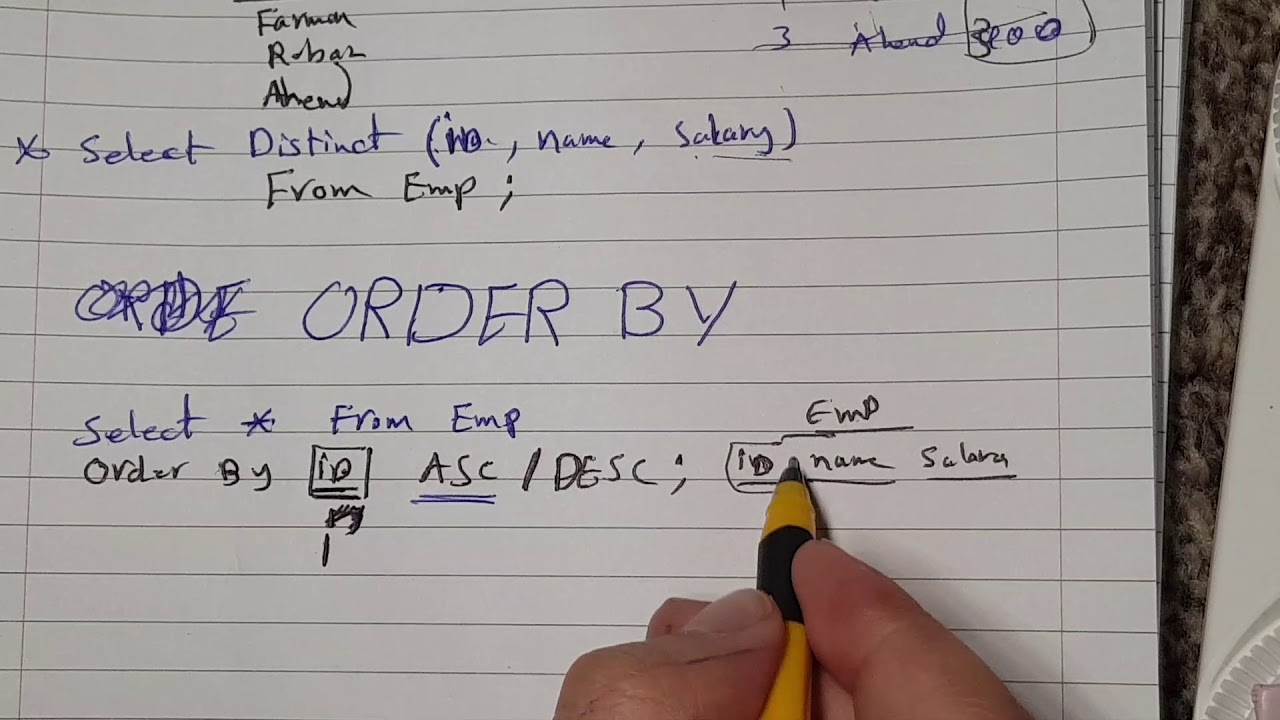 Farman
3 Ahend 3000
Roban
Ahend
* Select Distinct (iD., name, Salary)
From Emp;
ORDER BY
Select * From Emp
EmP
Order By iD ASC / DESC;
iD name Salary
1